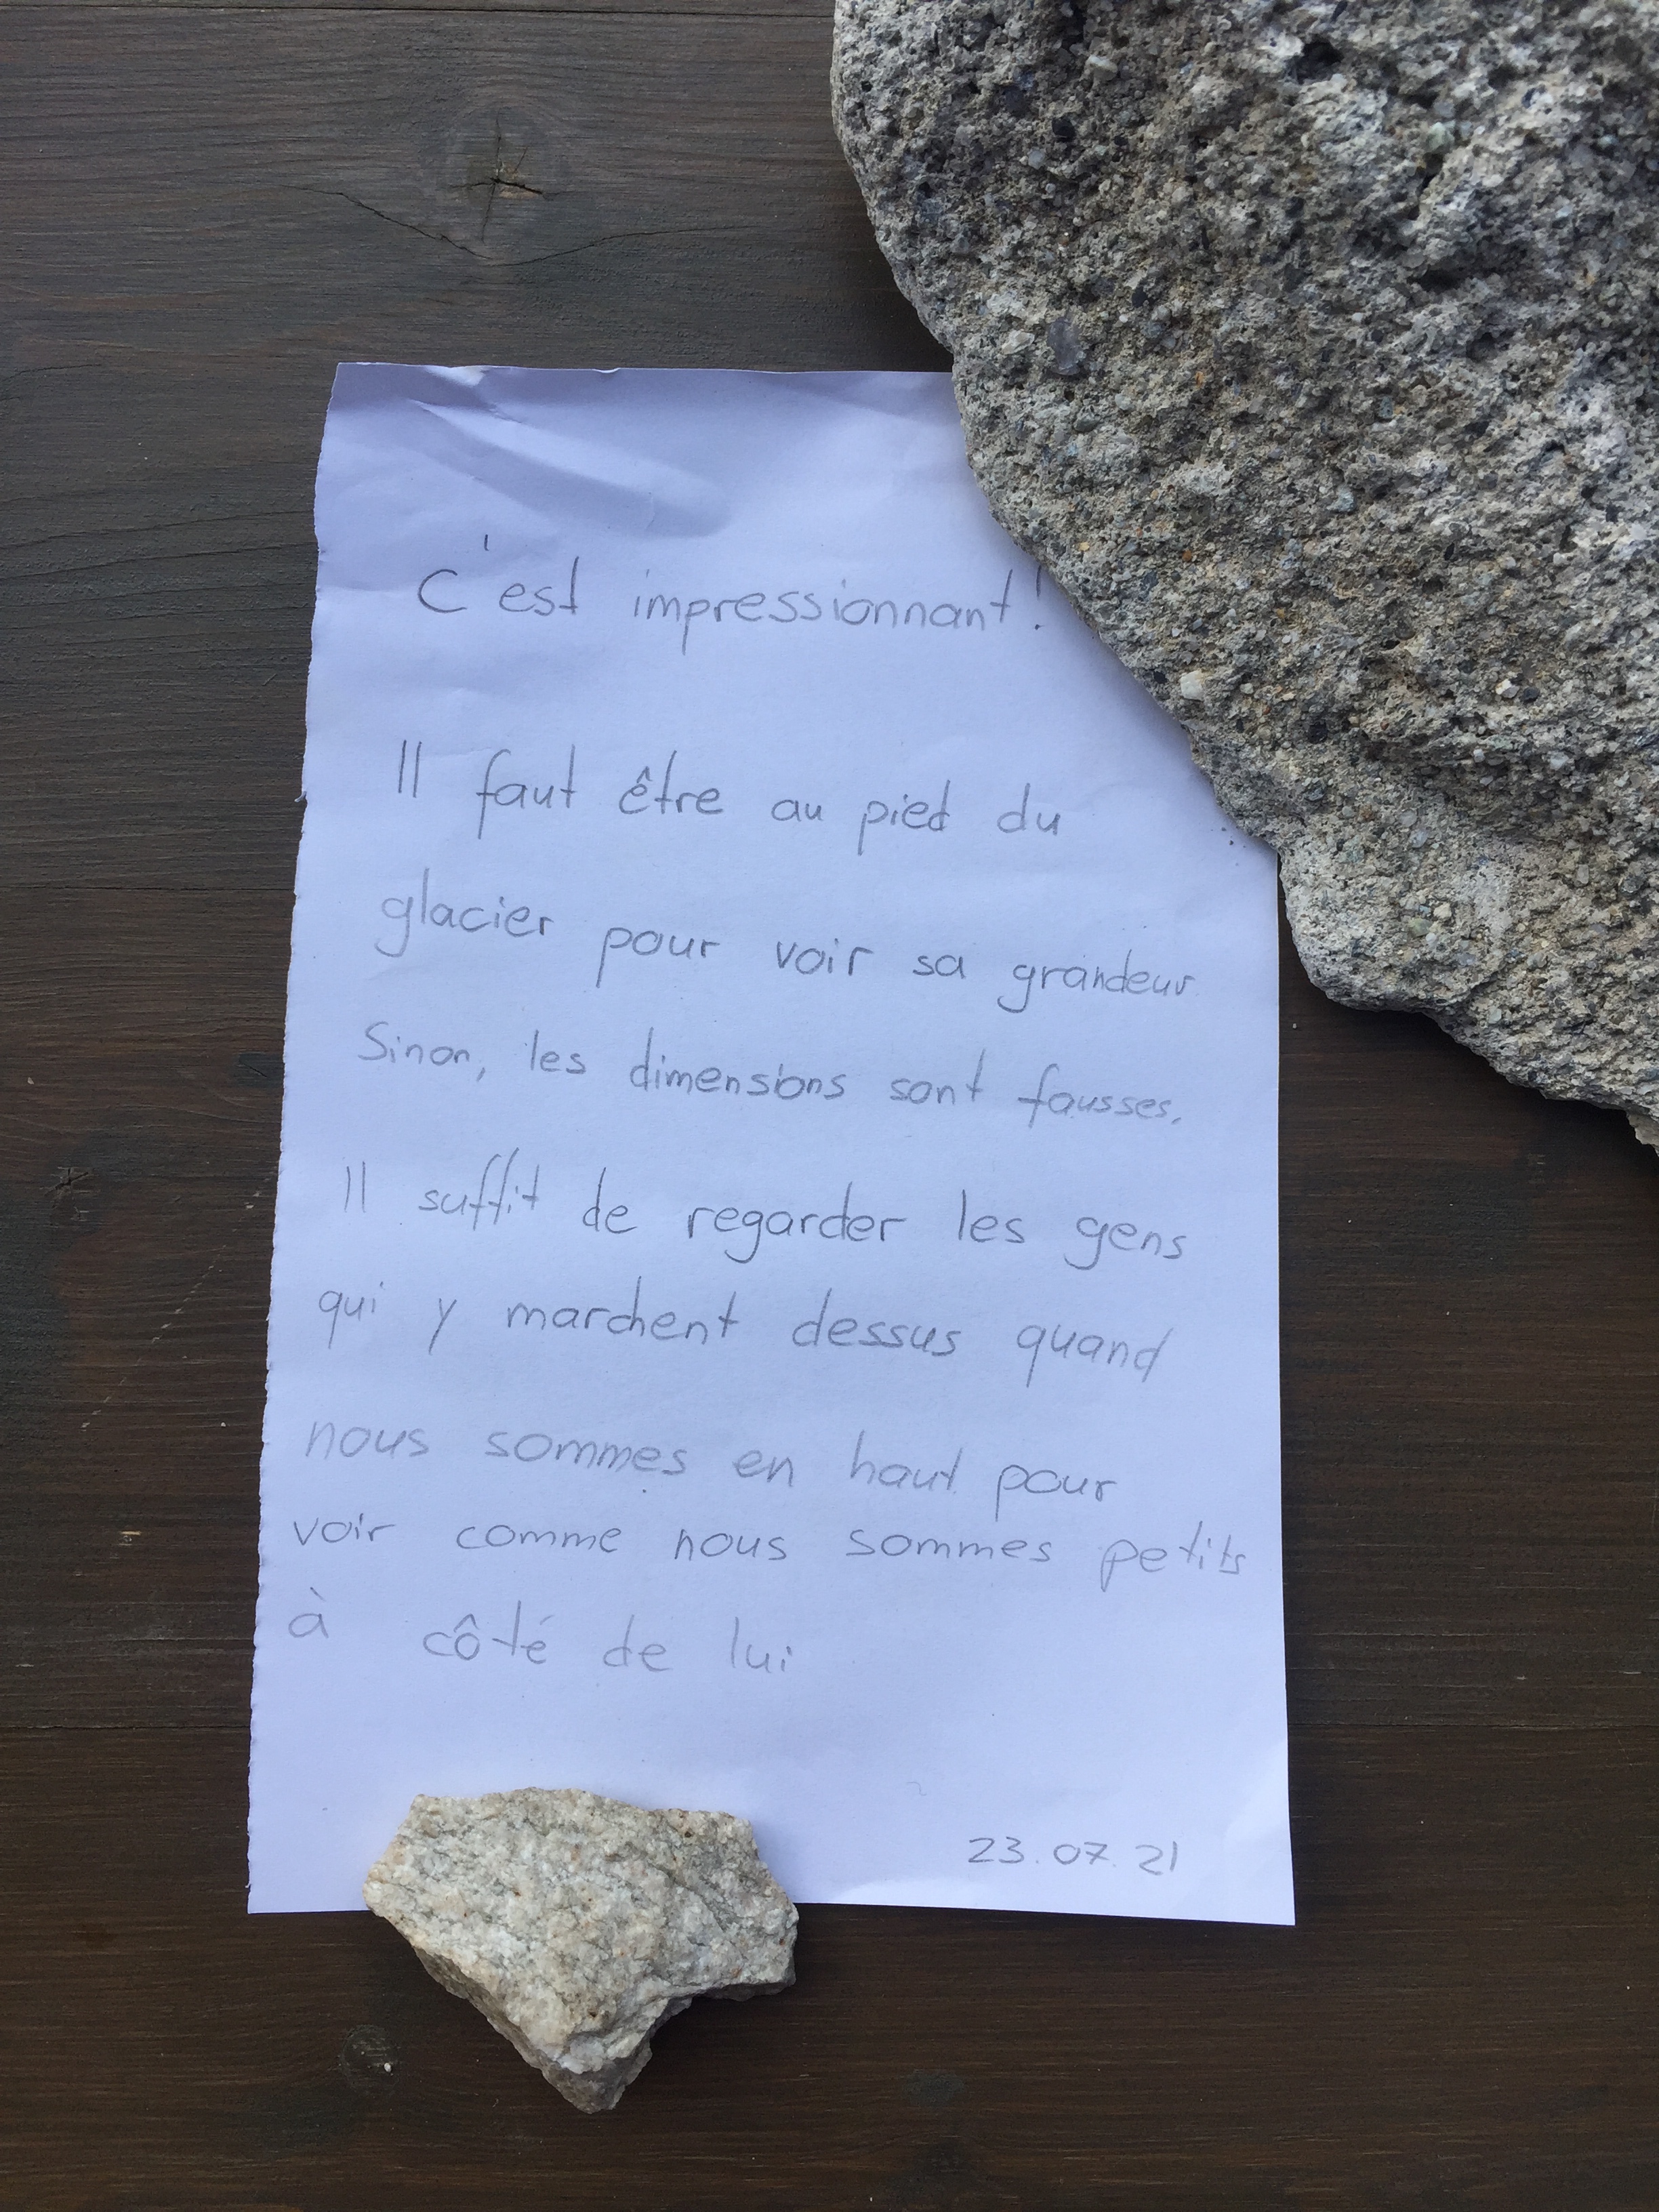 C'est impressionnant!
Il faut être au pied du
glacier pour voir sa grandeur
Sinon, les dimensions sont fausses.
Il suffit de regarder les gens
qui y marchent dessus quand
nous sommes en haut pour
voir comme nous sommes petits
à côté de lui
23.07.21